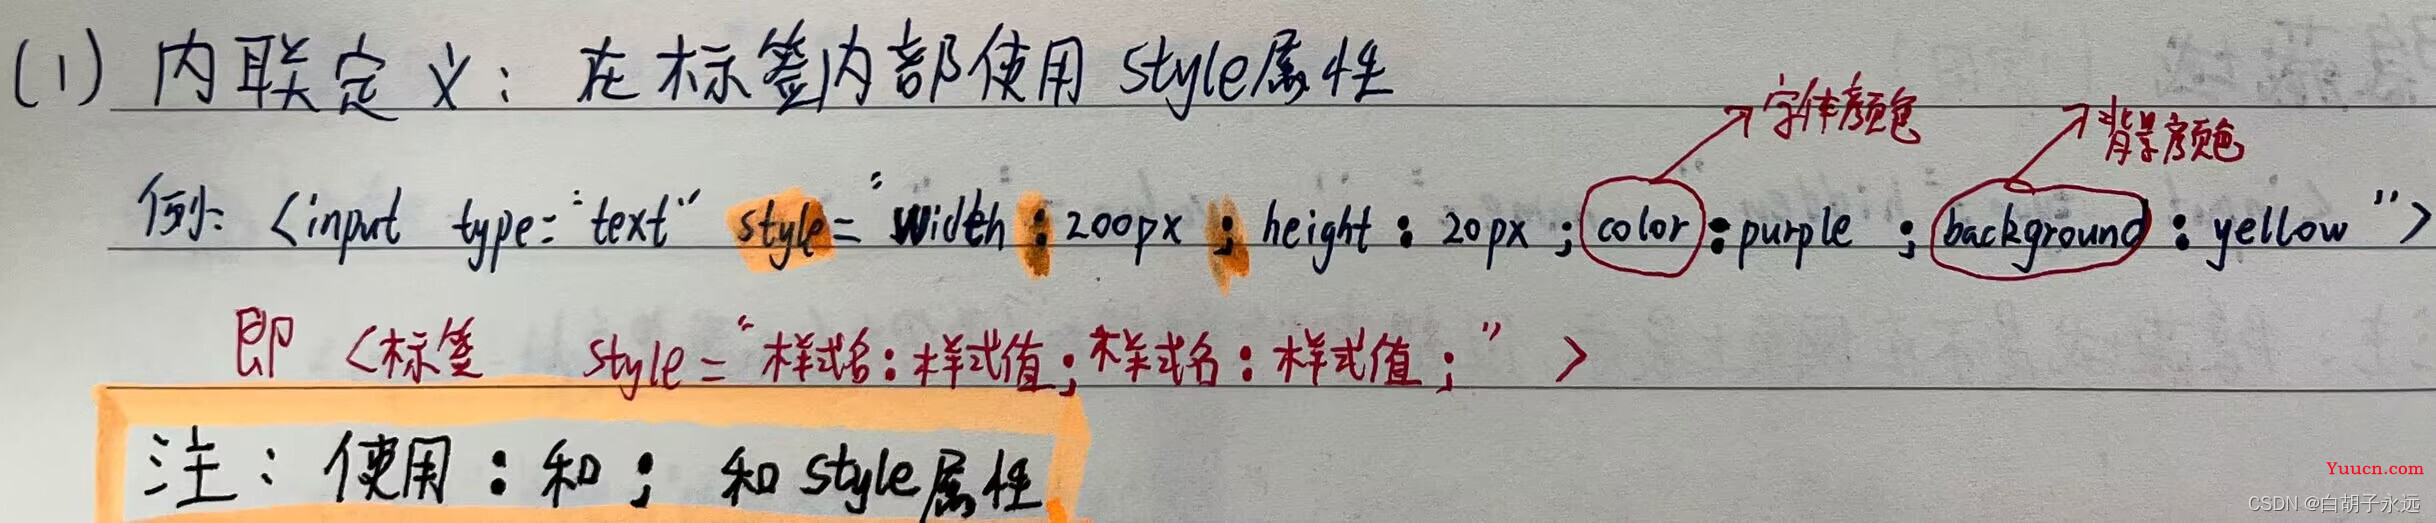 (1) 内联定义：在标签内部使用 style属性
字体颜色
背景颜色
例: <input type="text" style="width:200px; height:20px; color:purple; background:yellow">
即 <标签 style="样式名:样式值;样式名:样式值;">
注：使用 : 和 ; 和 style属性
Yuucn.com
CSDN @白胡子永远